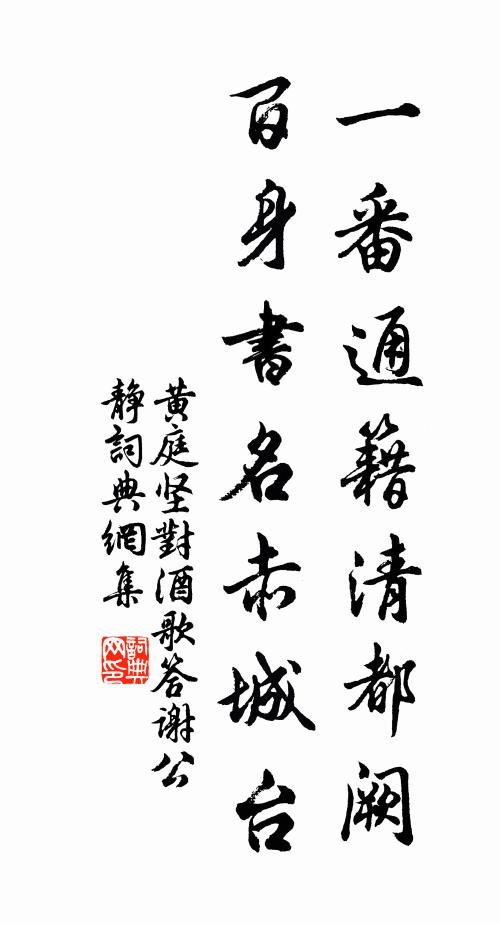 一番通籍清都阙
百身書名赤城台
黄庭坚對酒歌答谢公
静詞典網集
詞典
网印